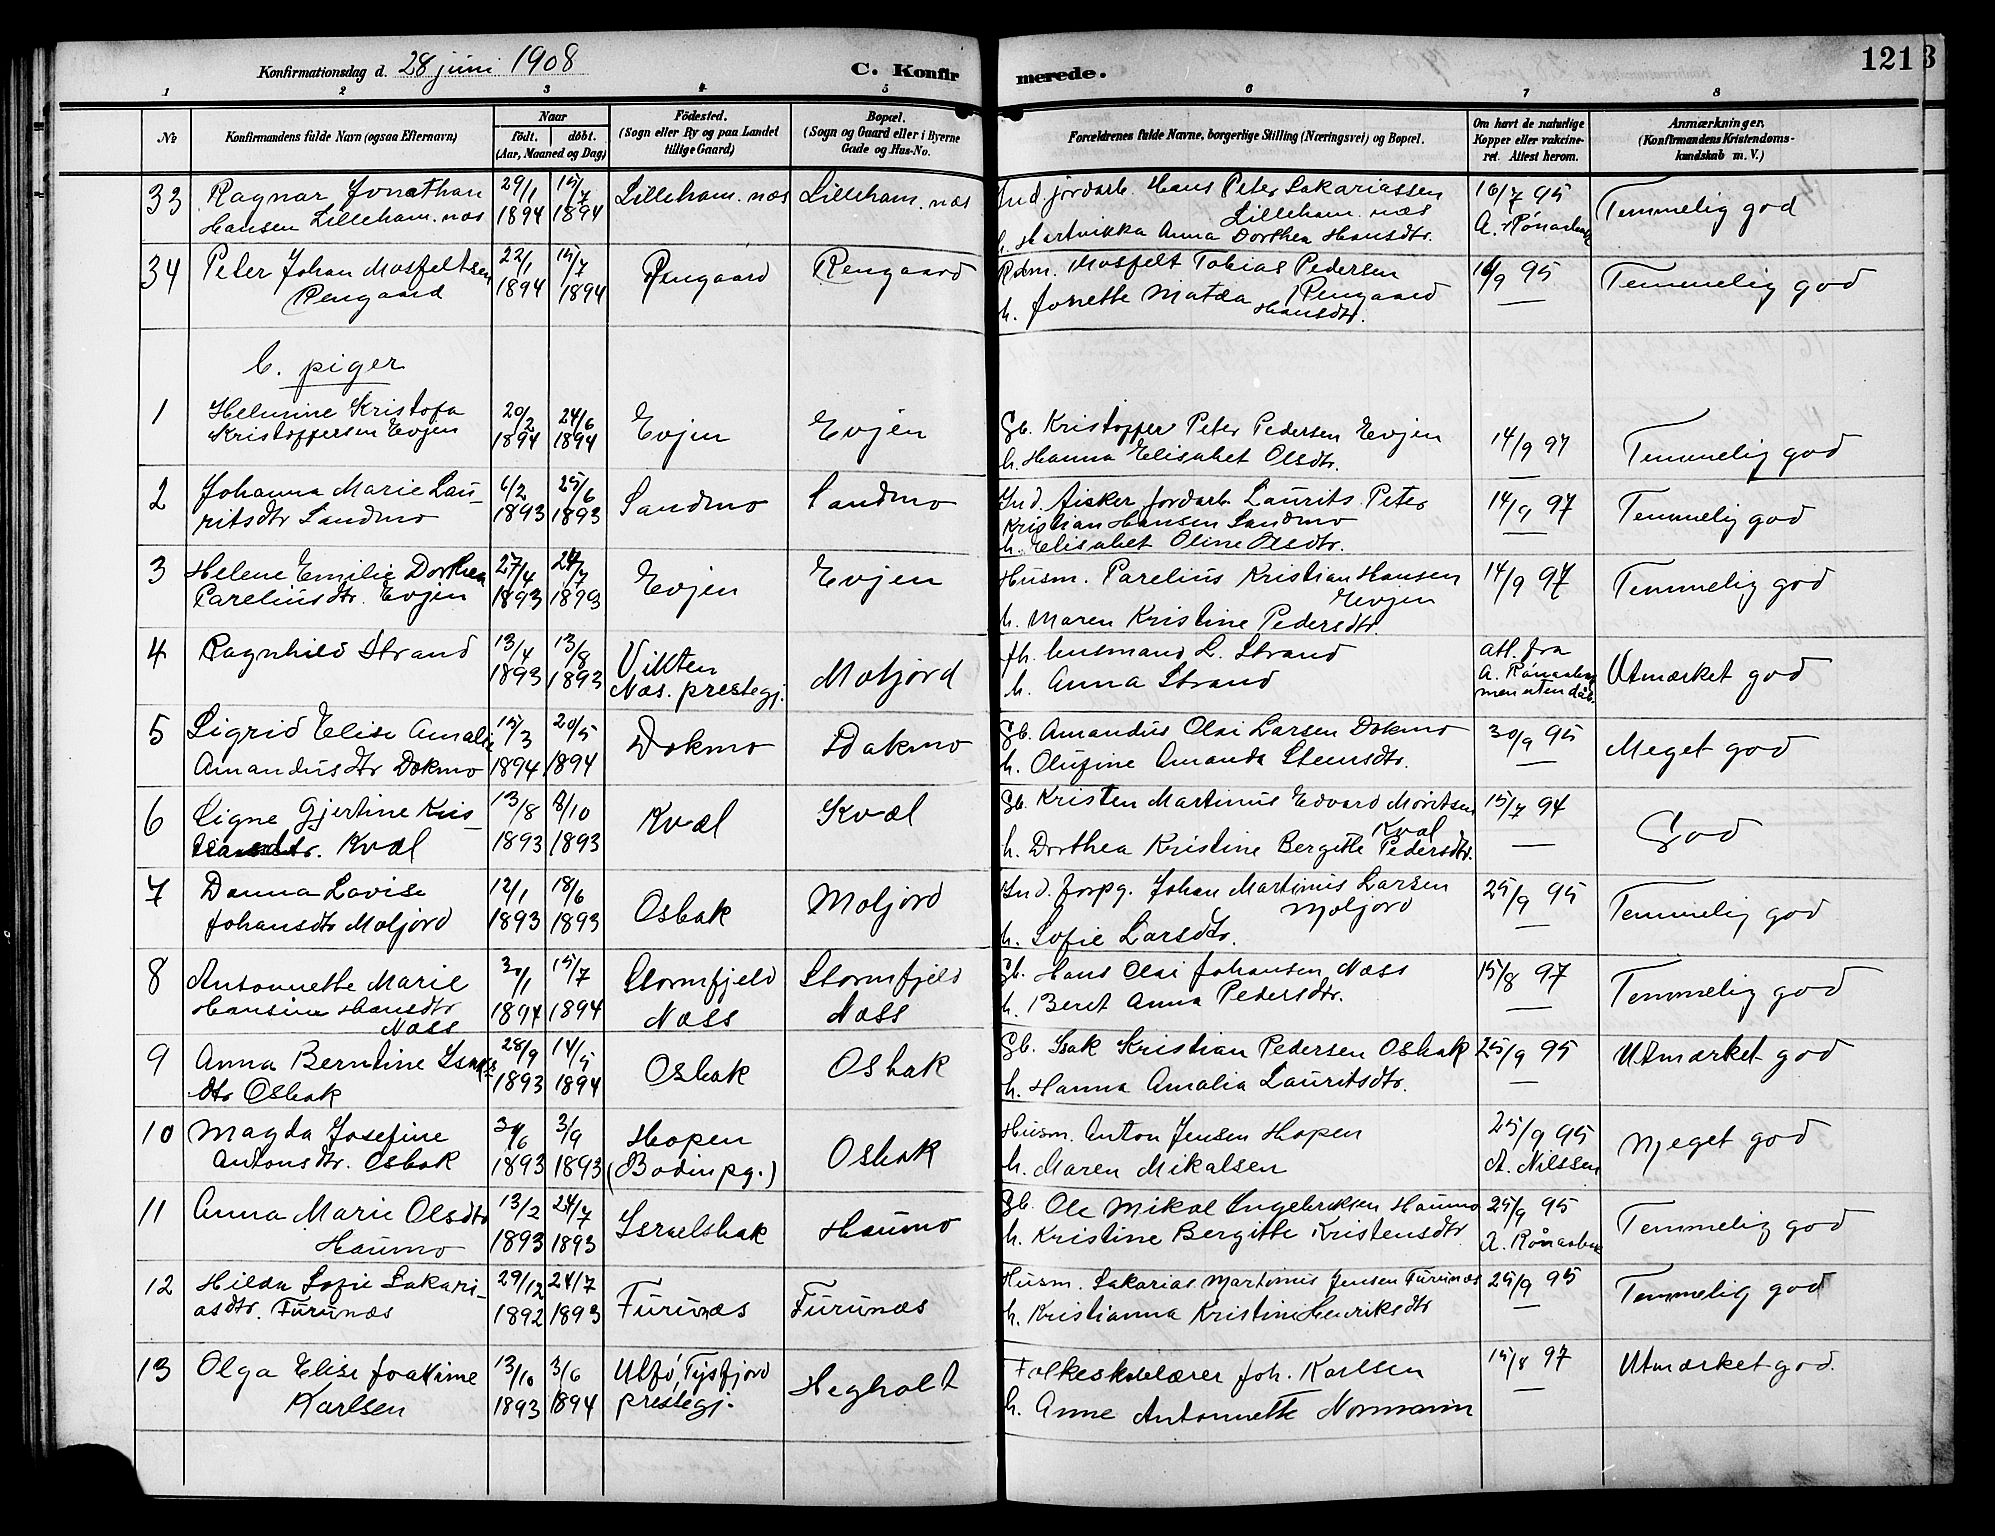 Konfirmationsdag d. 28 juni 1908 C. Konfirmerede. 121
1 2 3 4 5 6 7 8
No Konfirmandens fulde Navn (ogsaa Efternavn) Naar födt. döbt. (Aar, Maaned og Dag) Födested. (Sogn eller By og paa Landet tillige Gaard) Bopæl. (Sogn og Gaard eller i Byerne Gade og Hus-No. Forældrenes fulde Navne, borgerlige Stilling (Næringsvei) og Bopæl. Om havt de naturlige Kopper eller vaccineret. Attest herom. Anmærkninger. (Konfirmandens Kristendomskundskab m. V.)
33 Ragnar Jonathan 29/1 15/7 Lilleham. næs Lilleham. næs Ind. jordarb. Hans Peter Sakariassen 16/7 95 Temmelig god
Hansen Lilleham. næs 1894 1894 Lilleham. næs
h. Hartvikka Anna Dorthea Hansdtr. A. Rønaabæk
34 Peter Johan Mosfeltsen 22/1 15/7 Rengaard Rengaard Rdm. Mosfelt Tobias Pedersen 16/9 95 Temmelig god
Rengaard 1894 1894 Rengaard
h. Jonette Matæa Hansdtr. —
b. piger
1 Helmine Kristofa 20/2 24/6 Evjen Evjen Gb. Kristoffer Peter Pedersen Evjen 14/9 97 Temmelig god
Kristoffersen Evjen 1894 1894 h. Hanna Elisabet Olsdtr. —
2 Johanna Marie Lau- 6/2 25/6 Sandmo Sandmo Ind. fisker, jordarb. Laurits Peter 14/9 97 Temmelig god
ritsdtr Sandmo 1893 1893 Kristian Hansen Sandmo —
h. Elisabet Oline Olsdtr.
3 Helene Emilie Dorthea 27/4 24/7 Evjen Evjen Husm. Parelius Kristian Hansen 14/9 97 Temmelig god
Pareliusdtr. Evjen 1893 1893 Evjen
h. Maren Kristine Pedersdtr.
4 Ragnhild Strand 13/4 13/8 Vikten Moljord fh. L. Strand att. fra Utmærket god
1893 1893 Næs. prestegj. h. Anna Strand A. Rønaabæk
men uten dat.
5 Sigrid Elise Amalie 15/3 20/5 Dokmo Dokmo Gb. Amandus Olai Larsen Dokmo 30/9 95 Meget god
Amandusdtr Dokmo 1894 1894 h. Olufine Amanda Stensdtr. —
6 Signe Gjertine Kris- 13/8 8/10 Kvæl Kvæl Gb. Kristen Martinus Edvard Moritsen 15/7 94 God
tensdtr. Kvæl 1893 1893 Kvæl
h. Dorthea Kristine Bergitte Pedersdtr. —
7 Danna Lovise 12/1 18/6 Osbak Moljord Ind. forpg. Johan Martinus Larsen 25/9 95 Temmelig god
Johansdtr Moljord 1893 1893 Moljord —
h. Sofie Larsdtr.
8 Antonnette Marie 30/1 15/7 Stormfjeld Stormfjeld Gb. Hans Olai Johansen Næss 15/8 97 Temmelig god
Hansine Hansdtr 1894 1894 Næss Næss h. Beret Anna Pedersdtr. —
Næss
9 Anna Berntine Isaks- 28/9 14/5 Osbak Osbak Gb. Isak Kristian Pedersen Osbak 25/9 95 Utmærket god
dtr Osbak 1893 1894 h. Hanna Amalia Lauritsdtr. —
10 Magda Josefine 30/6 3/9 Hopen Osbak Husm. Anton Jensen Hopen 25/9 95 Meget god
Antonsdtr. Osbak 1893 1893 (Bodin pg.) h. Maren Mikalsen A. Nilssen
11 Anna Marie Olsdtr 13/2 24/7 Israelsbak Haumo Gb. Ole Mikal Ingebriktsen Haumo 25/9 95 Temmelig god
Haumo 1893 1893 h. Kristine Bergitte Kristensdtr A. Rønaabæk
12 Hilda Sofie Sakari- 29/12 24/7 Furunæs Furunæs Husm. Sakarias Martinus Jensen Furunæs 25/9 95 Temmelig god
asdtr. Furunæs 1892 1893 h. Kristianna Kristine Henriksdtr —
13 Olga Elise Joakime 13/10 3/6 Tysfjord Hegholt Folkeskolelærer Joh. Karlsen 15/8 97 Utmærket god.
Karlsen 1893 1894 prestegj. h. Anne Antonnette Normann —